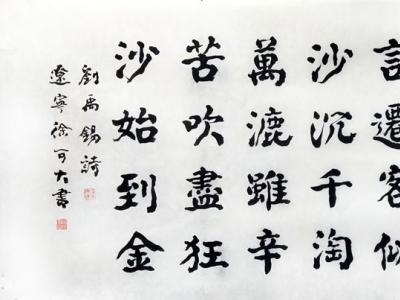 言遷客似
沙沉千淘
萬漉雖辛
苦吹盡狂
沙始到金
劉禹錫詩
遼寧徐可大書